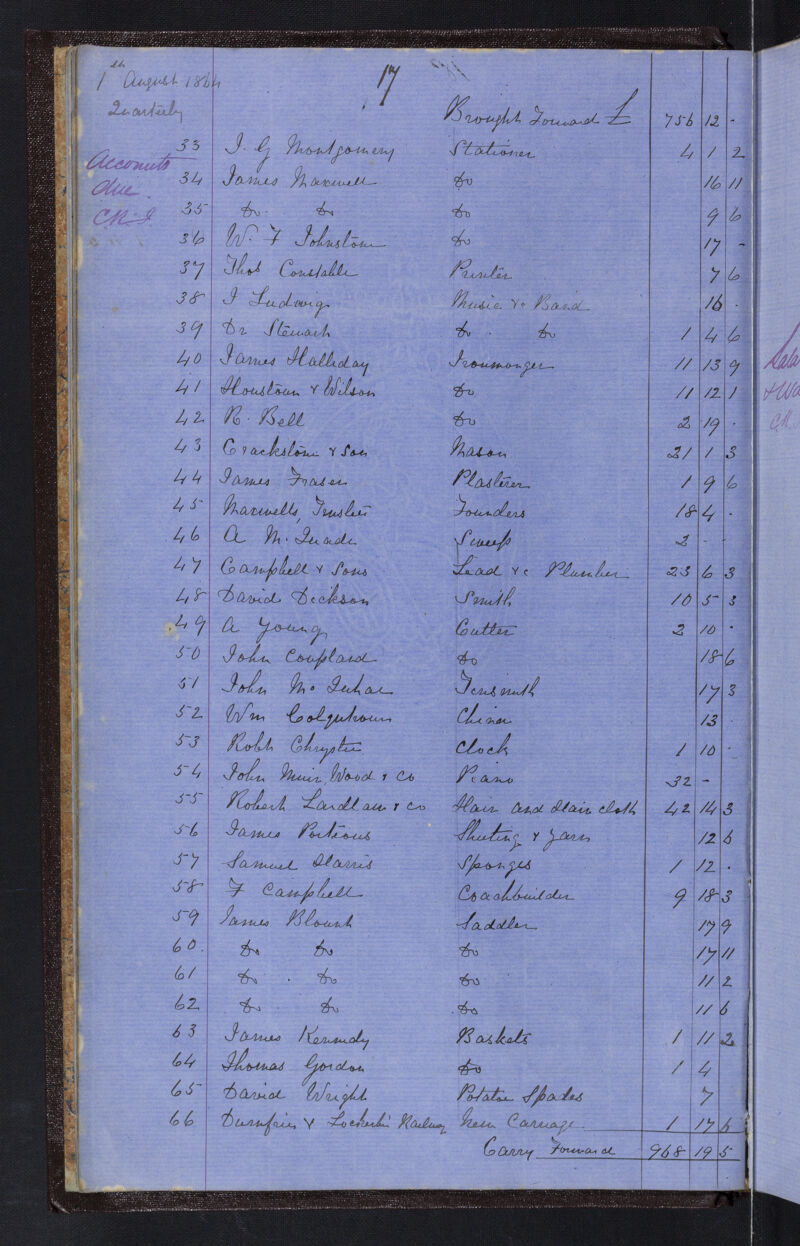 1th August 1864
17
Quarterly
Brought Forward £ 756 12 -
Accounts due. C.R.I.
33 J. G Montgomery Stationer 4 1 2
34 James Maxwell Do 16 11
35 Do Do Do 9 6
36 W. F Johnstone Do 17 -
37 Thos Constable Printer 7 6
38 J Ludwig Music &c Band 16 .
39 Dr Stewart Do Do 1 4 6
40 James Halliday Ironmonger 11 13 9
41 Houstoun & Wilson Do 11 12 1
42 R. Bell Do 2 19 .
43 Crackstone & Son Mason 21 1 3
44 James Fraser Plasterer 1 9 6
45 Maxwells, Trustees Founders 18 4 .
46 A M. Quade Sweep 2 . .
47 Campbell & Sons Lead &c Plumber 23 6 3
48 David Dickson Smith 10 5 3
49 A Young Cutter 2 10 .
50 John Coupland Do 18 6
51 John Mc Quhae Tinsmith 17 3
52 Wm Colquhoun China 13 .
53 Robt Chrystie Clock 1 10 .
54 John Muir, Wood & Co Piano 32 -
55 Robert Laidlaw & Co Hair and Hair cloth 42 14 3
56 James Porteous Sheeting & Yarn 12 6
57 Samuel Harris Sponges 1 12 .
58 F Campbell Coachbuilder 9 18 3
59 James Blount Saddler 17 9
60. Do Do Do 17 11
61 Do . Do Do 11 2
62 Do Do Do 11 6
63 James Kennedy Baskets 1 11 2
64 Thomas Gordon Do 1 4
65 David Wright Potatoe Spades 7
66 Dumfries & Lockerbie Railway Carriage 1 17 6
Carry Forward 968 19 5